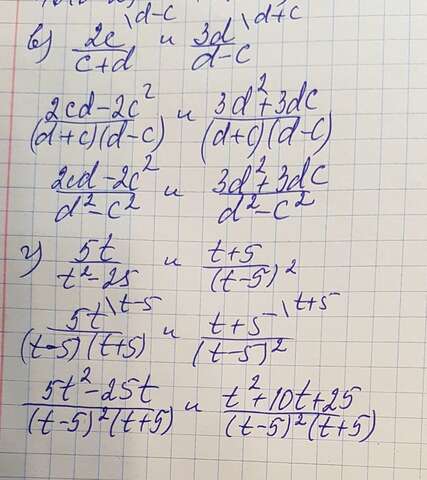 в) 2c/(c+d) \d-c и 3d/(d-c) \d+c
(2cd-2c²)/((d+c)(d-c)) и (3d²+3dc)/((d+c)(d-c))
(2cd-2c²)/(d²-c²) и (3d²+3dc)/(d²-c²)
г) 5t/(t²-25) и (t+5)/(t-5)²
5t/((t-5)(t+5)) \t-5 и (t+5)/(t-5)² \t+5
(5t²-25t)/((t-5)²(t+5)) и (t²+10t+25)/((t-5)²(t+5))